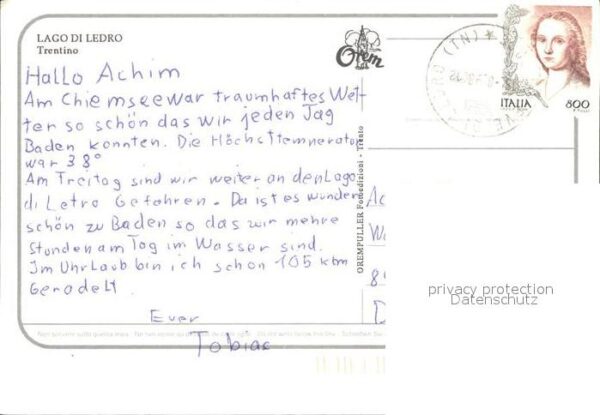 LAGO DI LEDRO
Trentino
Orem
ITALIA
800
Hallo Achim
Am Chiemsee war traumhaftes Wet-
ter so schön das wir jeden Tag
Baden konnten. Die Höchsttemperator
war 38°
Am Freitag sind wir weiter an den Lago
di Letro Gefahren. Da ist es wunder
schön zu Baden so das wir mehre
Stonden am Tag im Wasser sind.
Im Uhrlaub bin ich schon 105 ktm
Geradelt
Euer
Tobias
OREMPULLER Fotoedizioni • Trento
privacy protection
Datenschutz